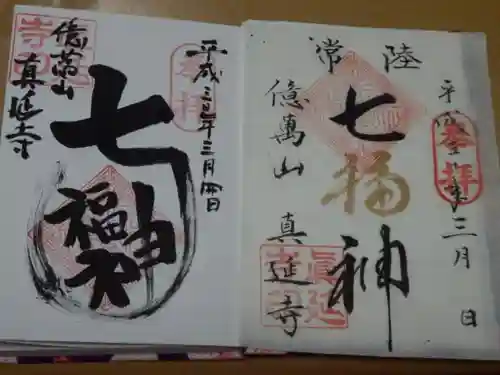 常陸
平成三十年三月 日
奉拝
七福神
億萬山 真延寺
平成三十年三月四日
奉拝
七福神
億萬山
真延寺